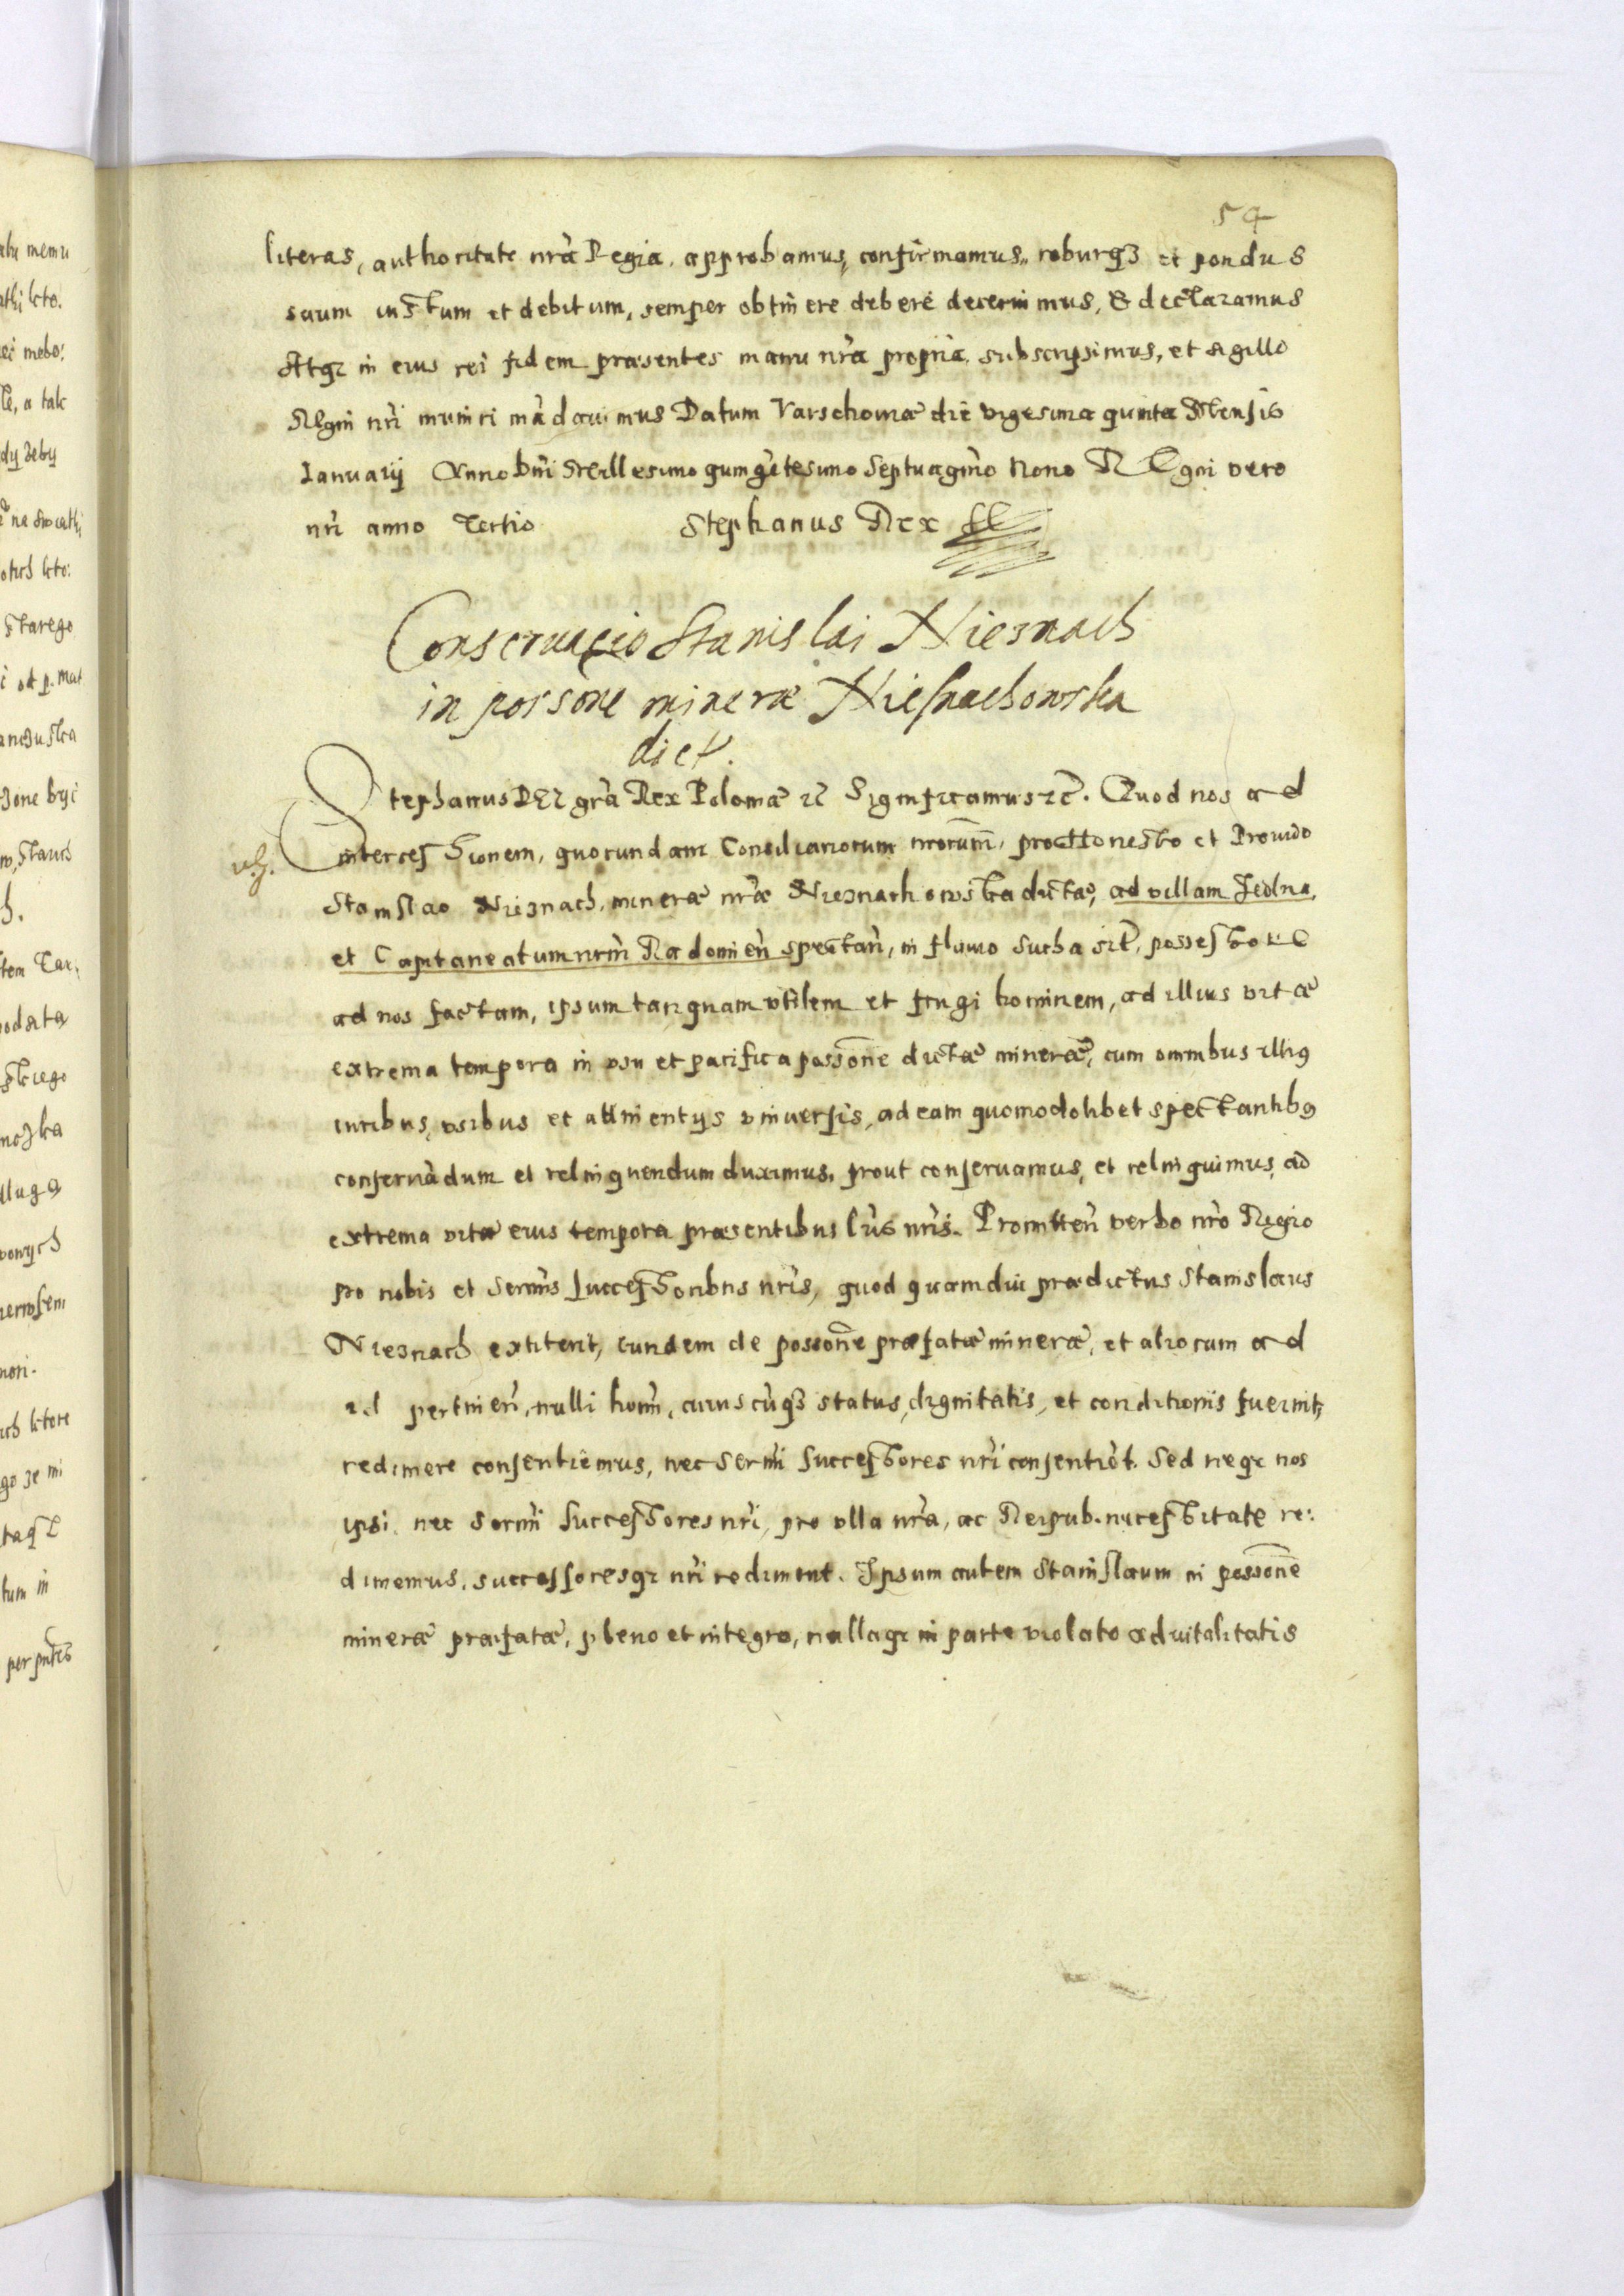 54
literas, authoritate nrà Regia, approbamus, confirmamus, roburqȝ et pondus
suum iustum et debitum, semper obtinere deberé decernimus, & declaramus
Atqȝ in eius rei fidem præsentes manu nrà propria subscripsimus, et sigillo
Regni nrì muniri mãdauimus Datum Varschouiæ die vigesima quinta Mensis
Ianuarij Anno Dnì Millesimo quingẽtesimo Septuagmò Nono REgni vero
nrì anno Tertio Stephanus Rex
Conseruacio Stanislai Niesnach
in possõne mineræ Niesnachowska
dict.
Stephanus DEI grà Rex Poloniæ zc Significamus zc. Quod nos ad
intercessionem, quorundam Consiliariorum nrorum, pro Honesto et Prouido
Stanislao Nieznach, mineræ nræ Nieznachowska dictæ, ad villam Jedlna,
et Capitaneatum nrm̀ Radomieǹ spectaǹ, in fluuio Sucha sit, possessore
ad nos factam, ipsum tanquam vtilem et frugi hominem, ad illius vitæ
extrema tempora in vsu et pacifica possõne dictæ mineræ, cum omnibus illiꝯ
iuribus, vsibus et attinentijs vniuersis, ad eam quomodolibet spectantibꝯ
conseruãdum et relinquendum duximus, prout conseruamus, et relinquimus, ad
extrema vitæ eius tempora præsentibus lrìs nrìs. Promitteǹ verbo nrò Regio
pro nobis et Sermìs successoribus nrìs, quod quamdiu prædictus Stanislaus
Nieznach extiterit, eundem de possonẽ præfatæ mineræ, et aliorum ad
id pertineǹ, nulli homì, cuius cùqȝ status, dignitatis, et conditionis fuerint,
redimere consentiemus, nec Sermì Successores nrì consentiẽt. Sed neqȝ nos
ipsi nec Sermì Successores nrì, pro vlla nrà, ac Reipub. necessitate re:
dimemus, successoresqȝ nrì redimẽt. Ipsum autem Stanislaum in possonẽ
mineræ præfatæ, pleno et integro, nullaqȝ in parte violato aduitalitatis